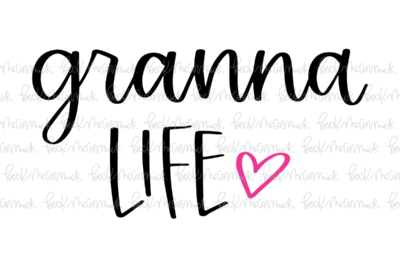 granna
LIFE